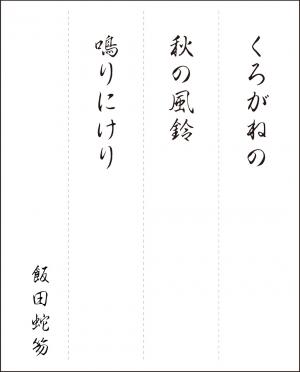 くろがねの
秋の風鈴
鳴りにけり
飯田蛇笏